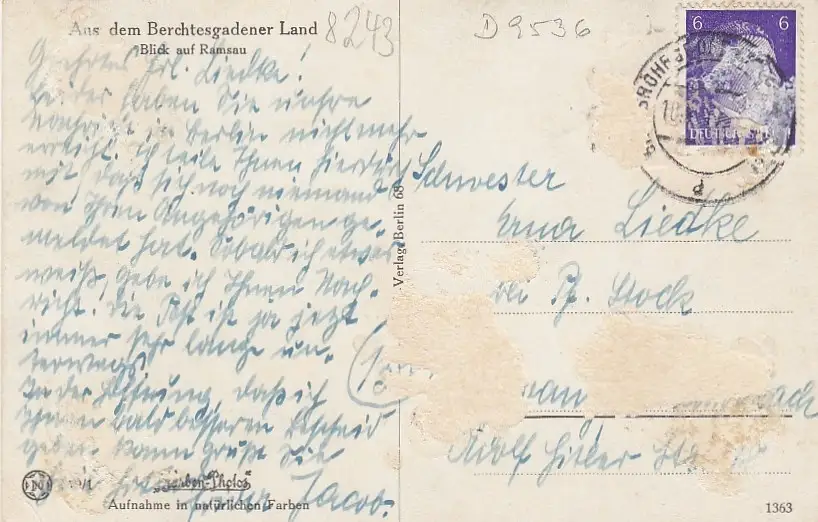 Aus dem Berchtesgadener Land
Blick auf Ramsau
8243
D 9536
Geehrtes Frl. Liedke!
Leider haben Sie unsre
Nachricht in Berlin nicht mehr
erreicht. Ich teile Ihnen hierdurch
mit, daß sich noch niemand
von Ihren Angehörigen ge-
meldet hat. Sobald ich etwas
weiß, gebe ich Ihnen Nach-
richt. Die Post ist ja jetzt
immer sehr lange un-
terwegs.
In der Hoffnung, daß ich
Ihnen bald besseren Bescheid
geben kann grüßt Sie
Jacob.
"Farben-Photos"
Aufnahme in natürlichen Farben
Verlag Berlin 68
6 6
DEUTSCHES
d
Schwester
Erna Liedke
bei Stock
Adolf Hitler Str.
1363